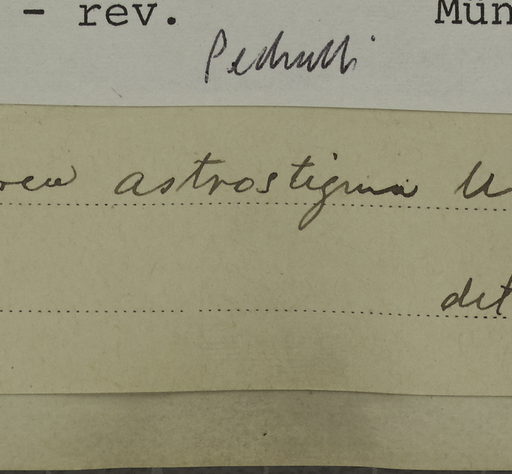 - rev. Mün
Pedrulli
rea astrostigma U
det